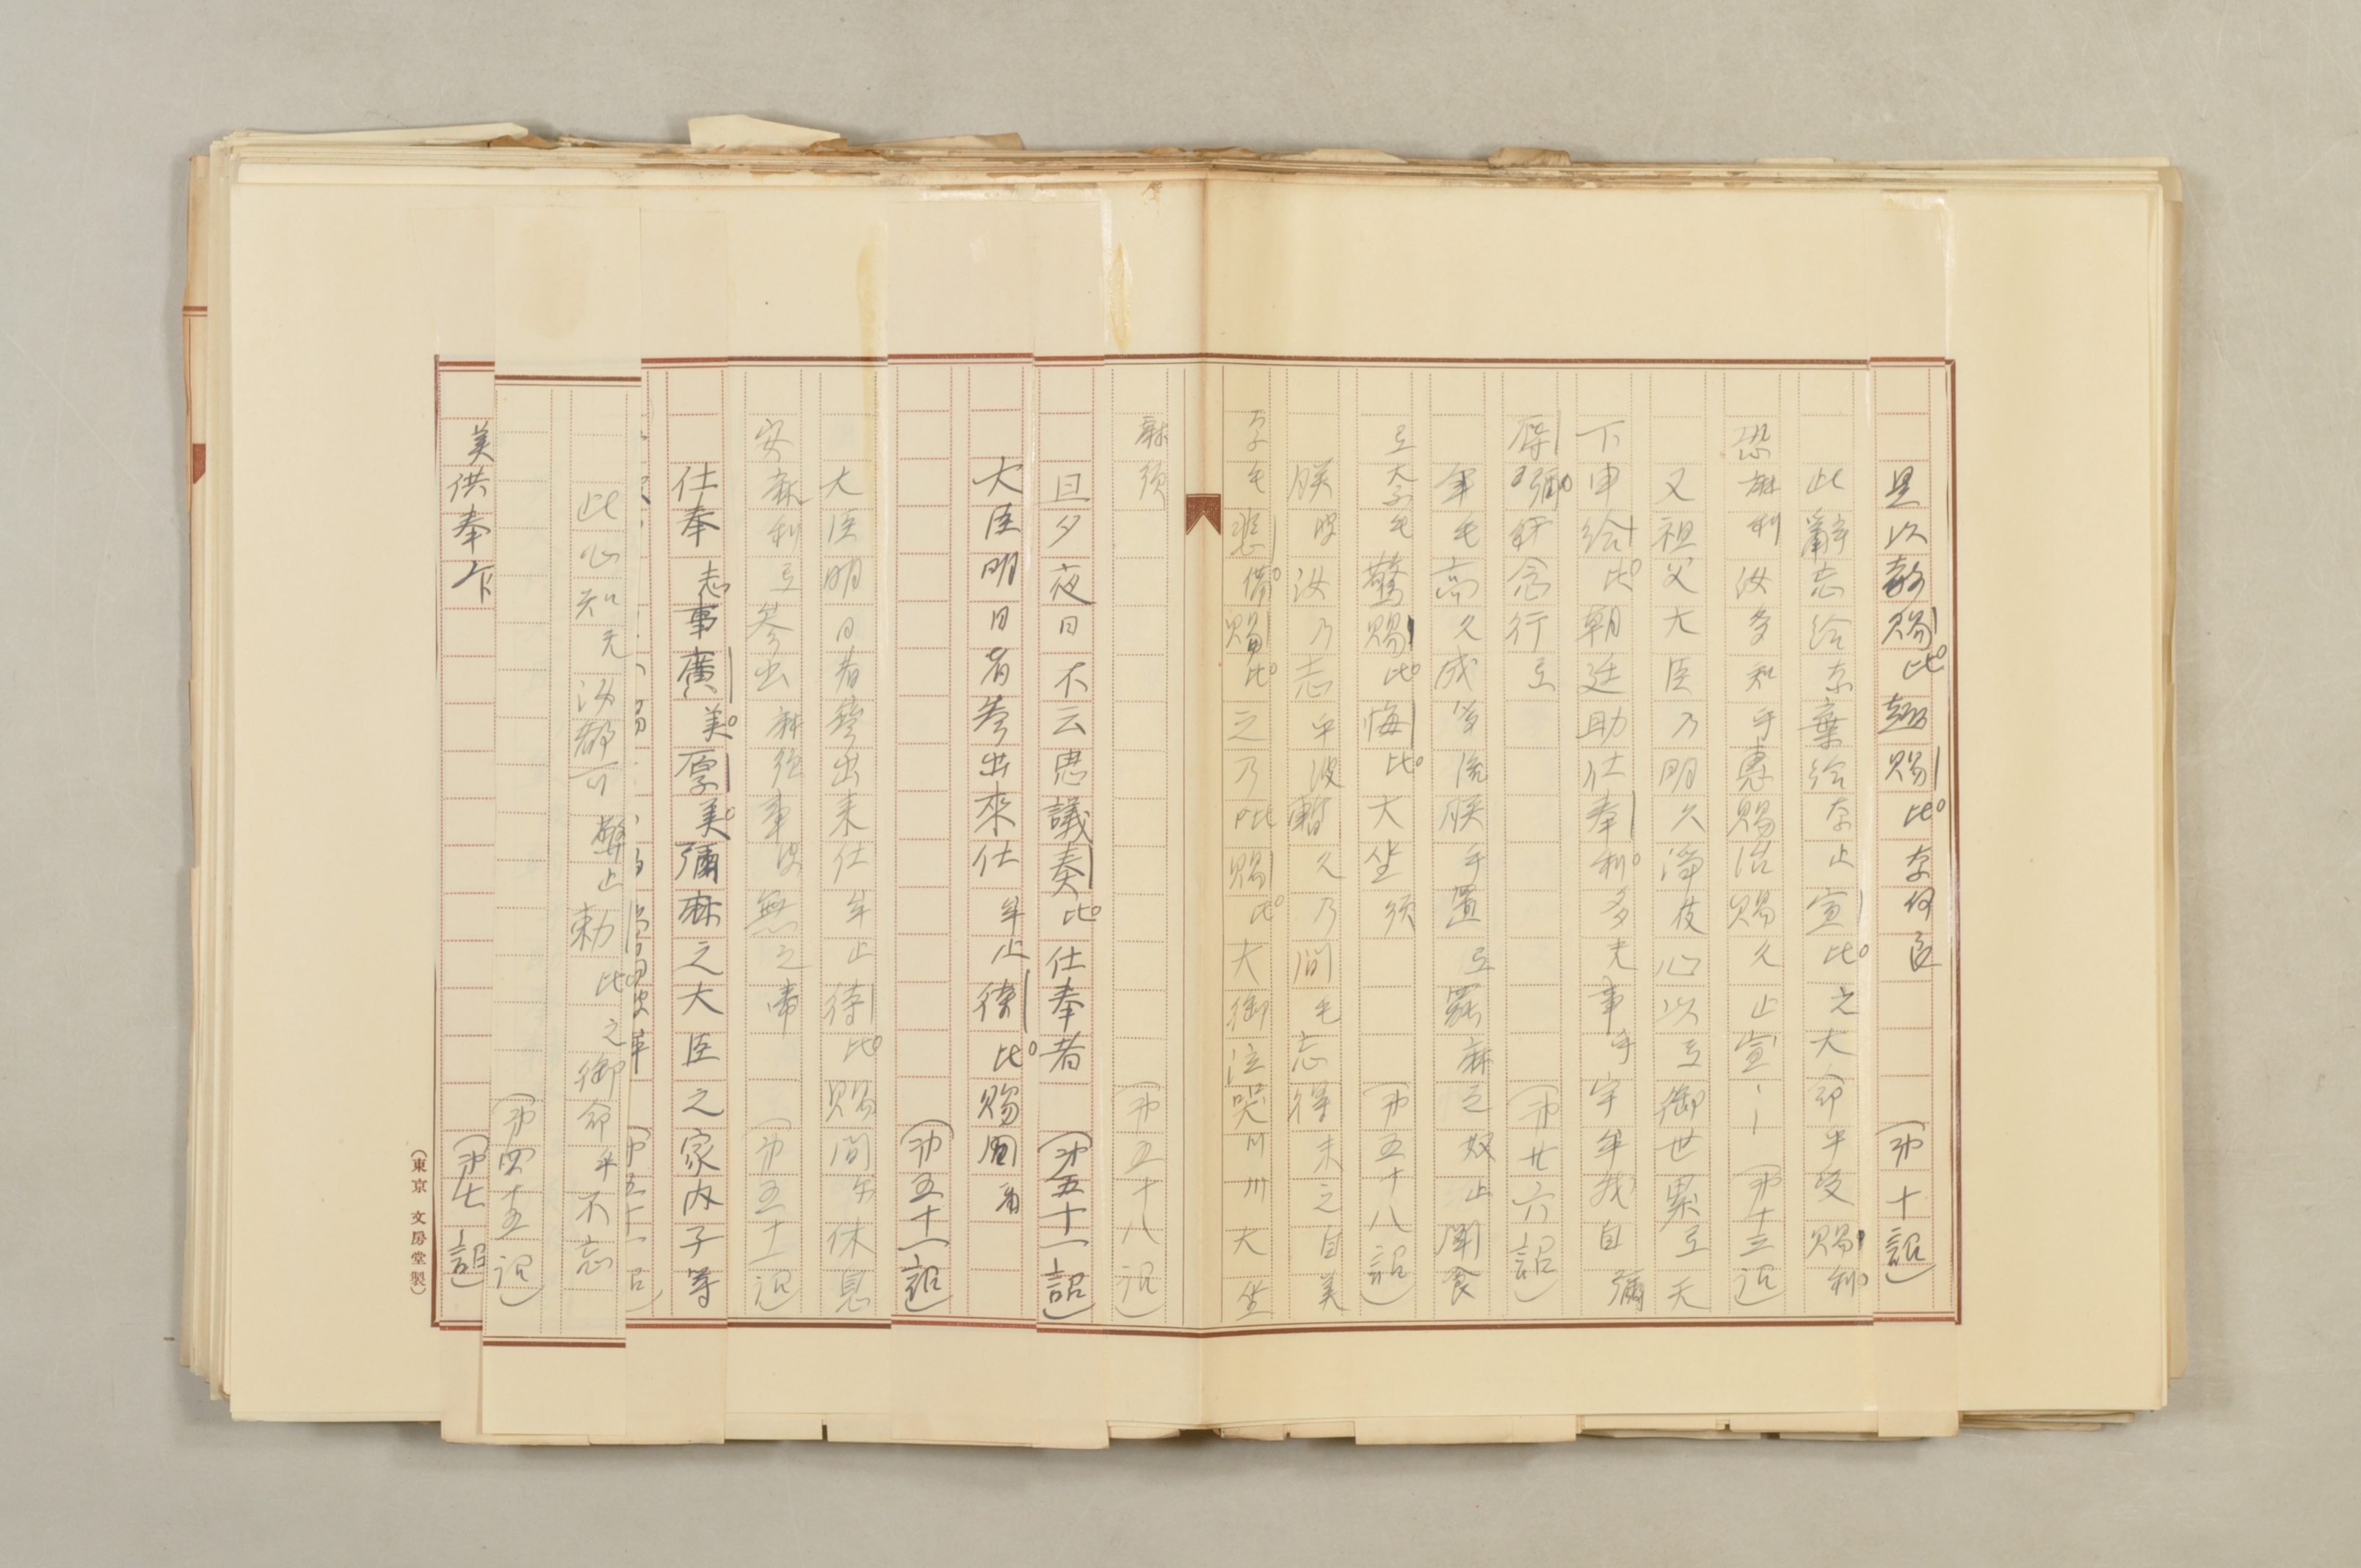 是以教賜比趣賜比奈何良 (第十詔)
此辞忘給奈棄給奈止宣比之大命乎受賜利
恐麻利汝多和乎恵賜治賜久止宣 (第十三詔)
又祖父大臣乃明久浄伎心以弖御世累弖天
下申給比朝廷助仕奉利多夫事乎宇牟我自弥
辱弥奈念行弖 (第廿六詔)
年毛高久成多流朕乎置弖罷麻之奴止聞食
弖大毛驚賜比悔比大坐須 (第五十八詔)
朕波汝乃志乎波暫久乃間毛忘得末之自美
奈毛悲備賜比之乃比賜比大御泣哭川川大坐
麻須 (第五十八詔)
旦夕夜日不云思議奏比仕奉者 (第五十一詔)
大臣明日者参出来仕牟止待比賜間 (第五十一詔)
大臣明日者参出来仕牟止待比賜間尓休息
安麻利弖参出麻須事波無之弖 (第五十一詔)
仕奉志事廣美厚美彌麻之大臣之家内子等
(第五十一詔)
此心知天汝都可弊止勅比之御命乎不忘
(第四十五詔)
美供奉乍 (第七詔)
(東京 文房堂製)